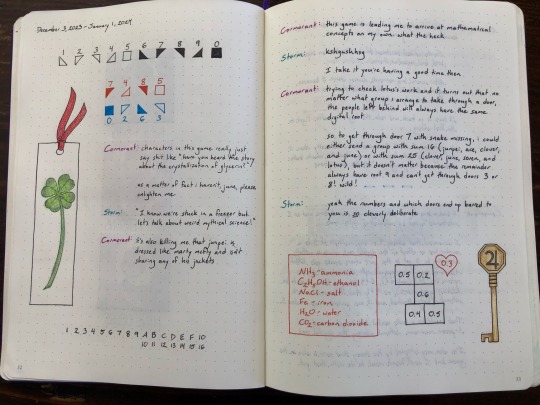 December 3, 2023 - January 1, 2024
1 2 3 4 5 6 7 8 9 0
7 4 8 5
0 2 6 3
Cormorant: characters in this game really just
say shit like "have you heard the story
about the crystalization of glycerin?"
as a matter of fact i haven't, june, please
enlighten me
Storm: "I know we're stuck in a freezer but
let's talk about weird mythical science!"
Cormorant: it's also killing me that junpei is
dressed like marty mcfly and isn't
sharing any of his jackets
1 2 3 4 5 6 7 8 9 A B C D E F 10
10 11 12 13 14 15 16
Cormorant: this game is leading me to arrive at mathematical
concepts on my own. what the heck.
Storm: kshgushkhg
I take it you're having a good time then
Cormorant: trying to check lotus's work and it turns out that no
matter what group i arrange to take through a door,
the people left behind will always have the same
digital root
so to get through door 7 with snake missing, i could
either send a group with sum 16 (junpei, ace, clover,
and june) or with sum 25 (clover, june, seven, and
lotus), but it doesn't matter because the remainder
always have root 9 and can't get through doors 3 or
8! wild!
Storm: yeah the numbers and which doors end up barred to
you is so cleverly deliberate
NH₃ - ammonia
C₂H₅OH - ethanol
NaCl - salt
Fe - iron
H₂O - water
CO₂ - carbon dioxide
0.3
0.5 0.2
0.6
0.4 0.5
♃